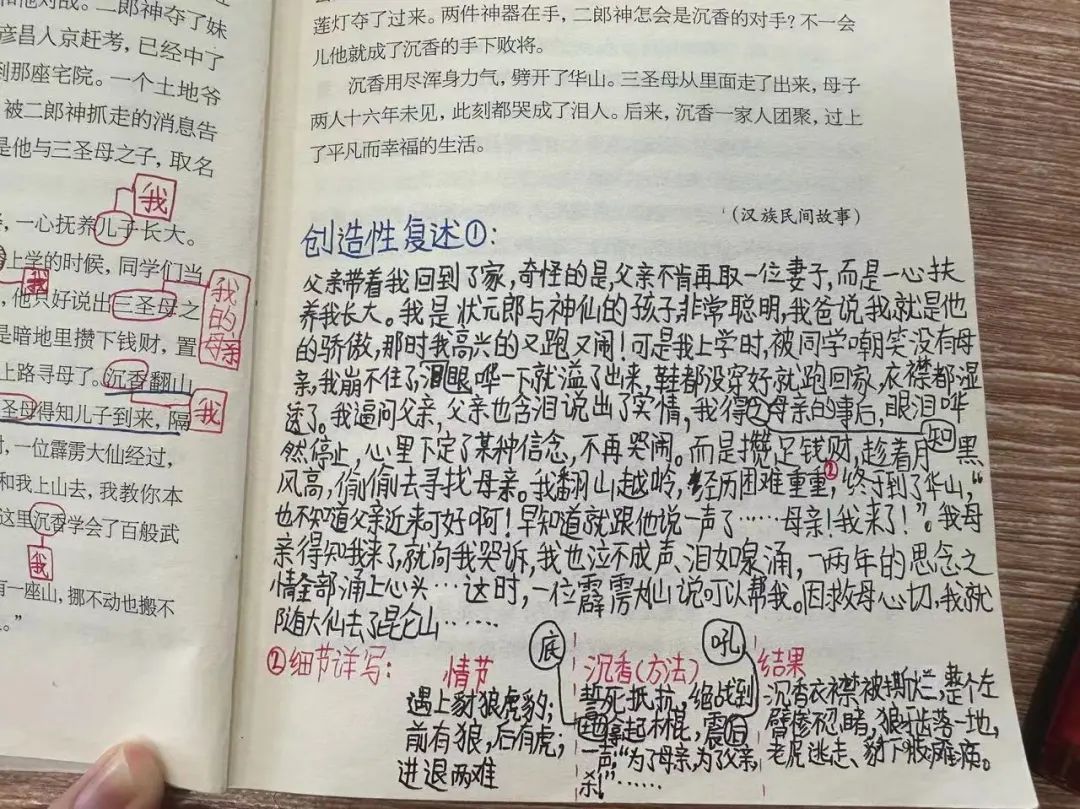 和他对战。二郎神夺了妹
彦昌入京赶考，已经中了
到那座宅院。一个土地爷
被二郎神抓走的消息告
是他与三圣母之子，取名
我
，一心抚养儿子长大。
上学的时候，同学们当
我
他只好说出三圣母之
我的母亲
是暗地里攒下钱财，置
上路寻母了。沉香翻山
我
圣母得知儿子到来，隔
时，一位霹雳大仙经过，
和我上山去，我教你本
这里沉香学会了百般武
我
有一座山，挪不动也搬不
。”
莲灯夺了过来。两件神器在手，二郎神怎会是沉香的对手？不一会
儿他就成了沉香的手下败将。
沉香用尽浑身力气，劈开了华山。三圣母从里面走了出来，母子
两人十六年未见，此刻都哭成了泪人。后来，沉香一家人团聚，过上
了平凡而幸福的生活。
（汉族民间故事）
创造性复述①：
父亲带着我回到了家，奇怪的是，父亲不肯再取一位妻子，而是一心扶
养我长大。我是状元郎与神仙的孩子非常聪明，我爸说我就是他
的骄傲，那时我高兴的又跑又闹！可是我上学时，被同学嘲笑没有母
亲，我崩不住了，泪眼哗一下就溢了出来，鞋都没穿好就跑回家，衣襟都湿
透了。我逼问父亲，父亲也含泪说出了实情，我得母亲的事后，眼泪哗
知
然停止，心里下定了某种信念，不再哭闹。而是攒足钱财，趁着月黑
风高，偷偷去寻找母亲。我翻山越岭，经历困难重重②，终寻到了华山，“
也不知道父亲近来可好啊！早知道就跟他说一声了……母亲！我来了！”。我母
亲得知我来了，就向我哭诉，我也泣不成声、泪如泉涌，两年的思念之
情全部涌上心头…这时，一位霹雳大仙说可以帮我。因救母心切，我就
随大仙去了昆仑山……
②细节详写：
情节
遇上豺狼虎豹；
前有狼，后有虎；
进退两难
底
沉香（方法）
吼
誓死抵抗，绝战到
拿起木棍，震
一声，“为了母亲，为了父亲，
杀！”……
结果
沉香衣襟被撕烂，整个左
臂惨不忍睹，狼牙齿落一地，
老虎逃走、豹下肢瘫痪。